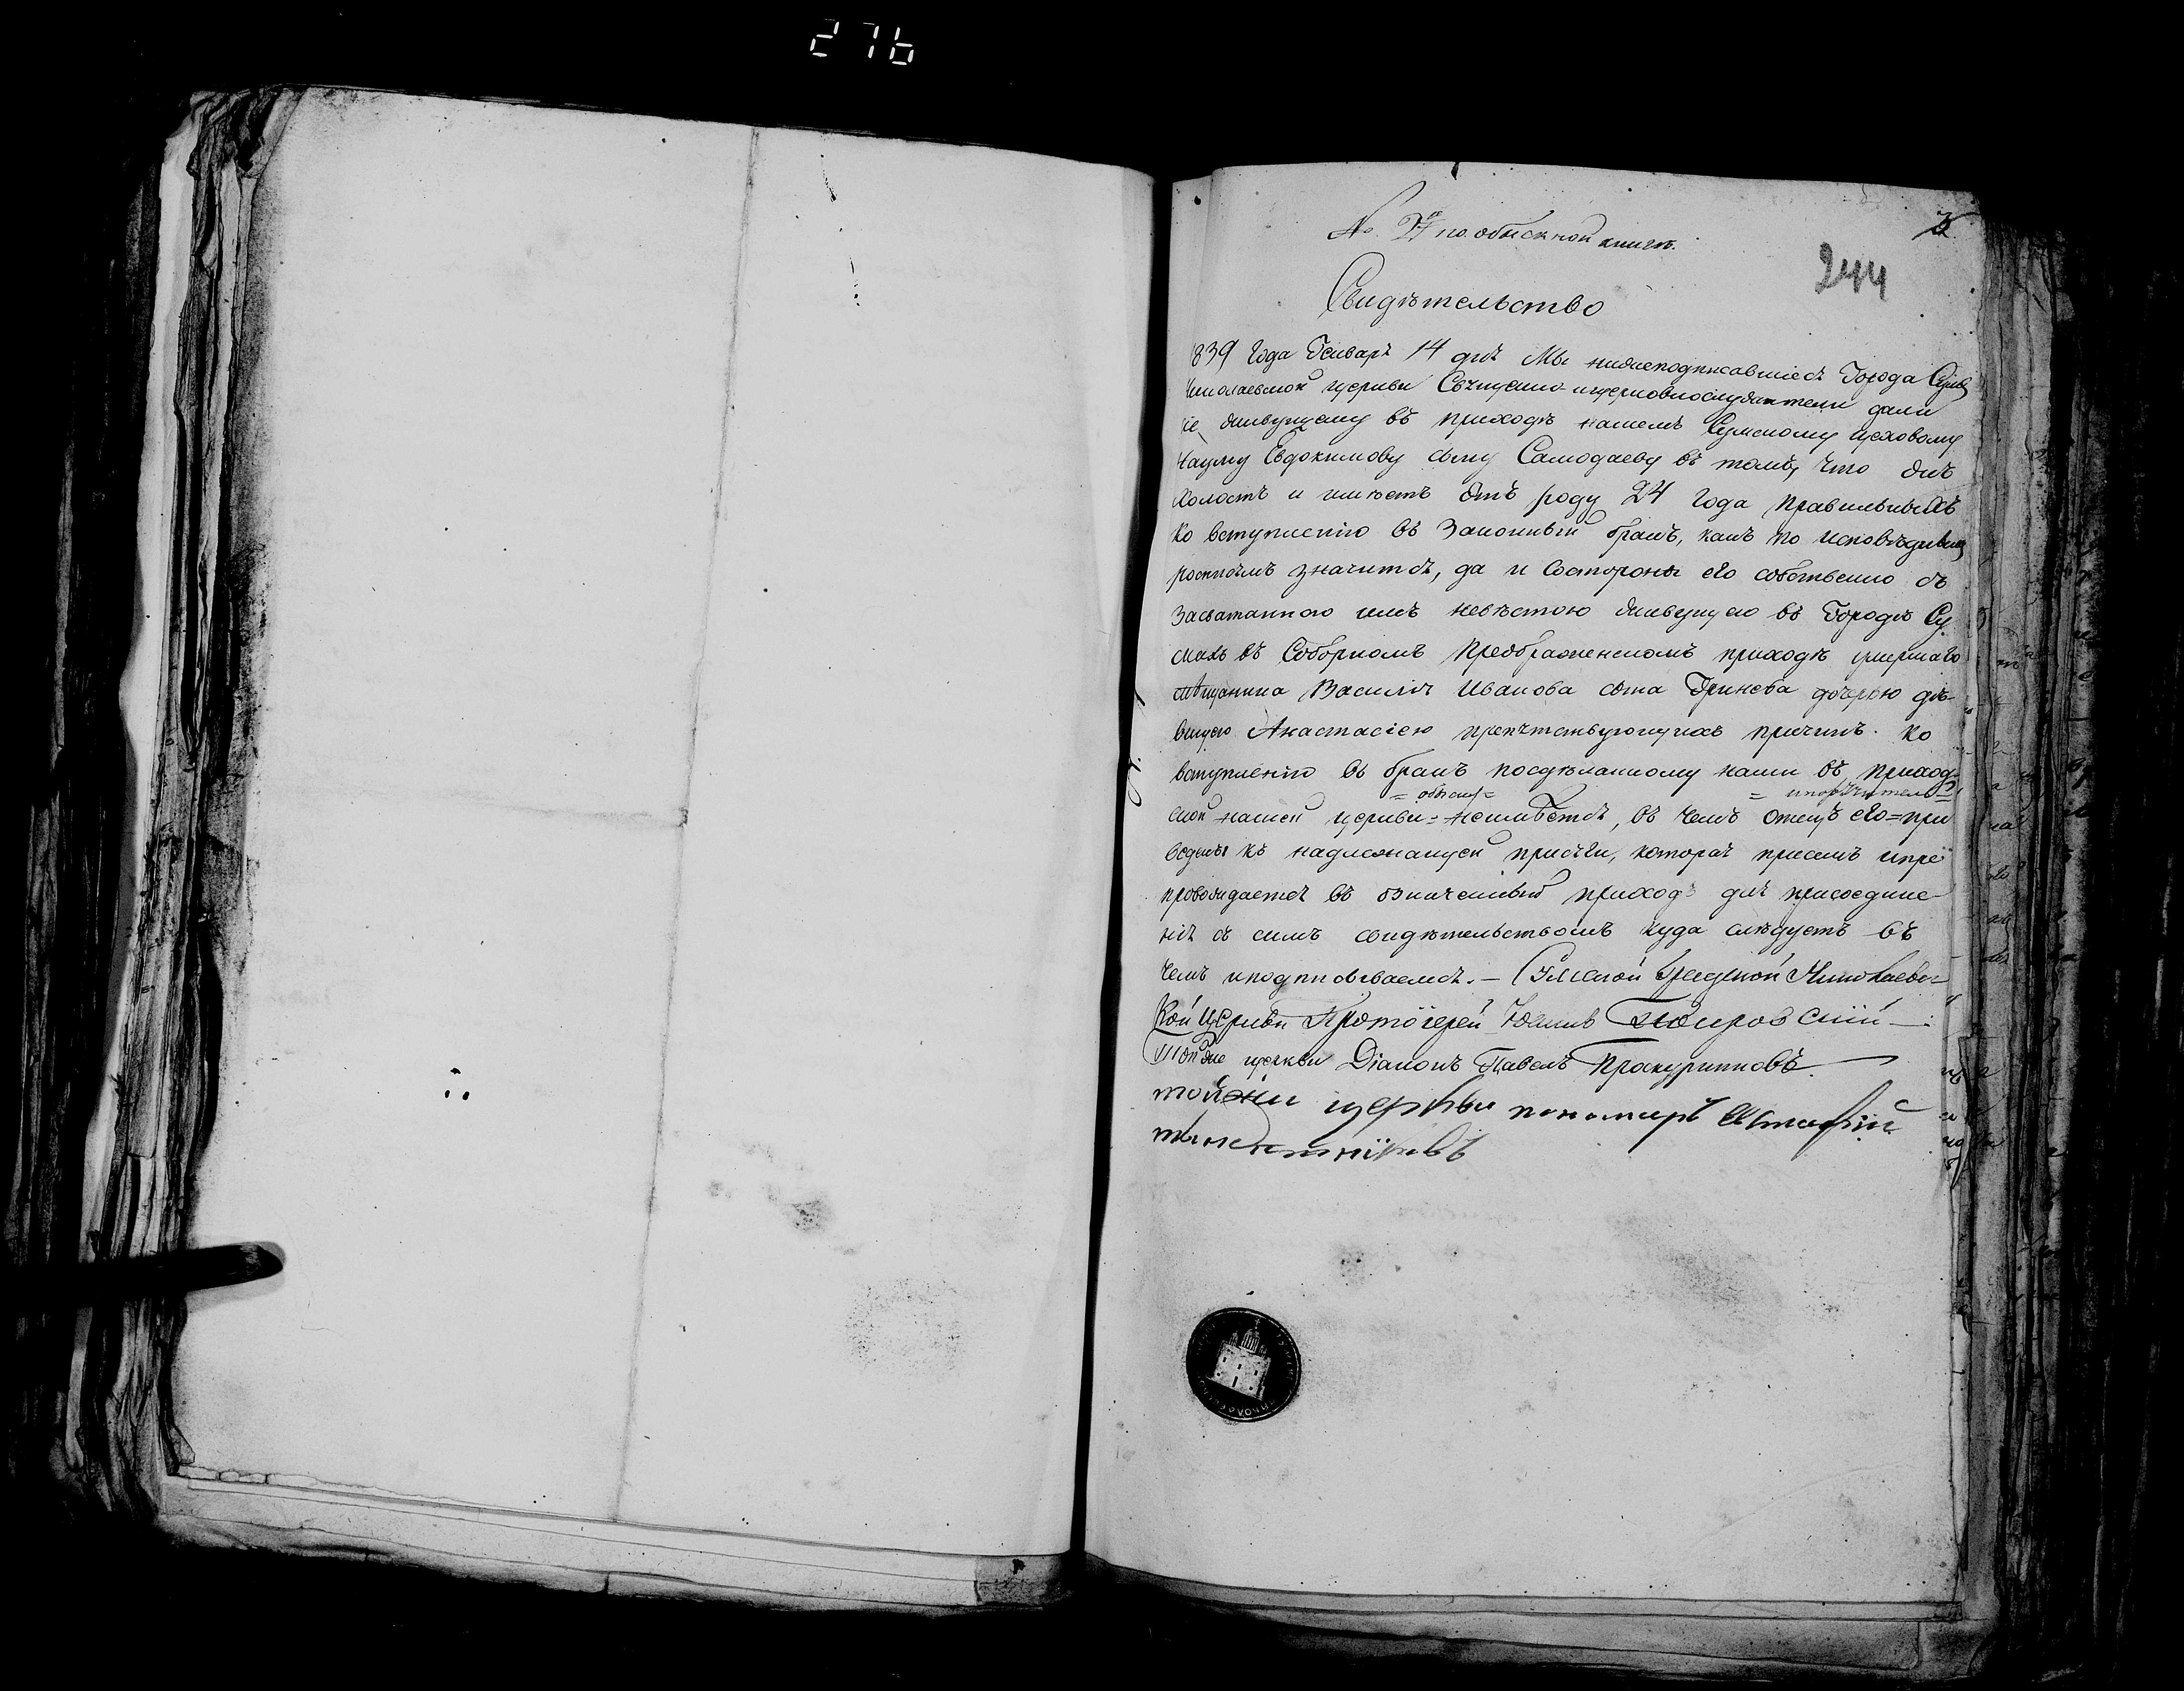 276
3
№ 2й по обыскной книгѣ.
244
Свидѣтельство
1839 Года Генваря 14 дня Мы нижеподписавшіеся Города Сумъ
Николаевской церкви Священно и церковнослужители дали
сіе живущему въ приходѣ нашемъ Сумскому цеховому
Науму Евдокимову сыну Самодаеву въ томъ, что онъ
холостъ и имѣетъ отъ роду 24 года правильныхъ
ко вступленію въ Законный бракъ, какъ по исповѣднымъ
росписямъ значится, да и состороны его собственно съ
засватанною имъ невѣстою живущею въ Городѣ Су
махъ въ Соборномъ Преображенскомъ приходѣ умершаго
мѣщанина Василія Иванова сына Гринева дочерью дѣ-
вицею Анастасіею препятствующихъ причинъ ко
вступленію въ бракъ посдѣланному нами въ приход-
= обыску = = ипоручители =
ской нашей церкви = неимѣется, въ чемъ отецъ его = при
ведены къ надлежащей присяги, которая присемъ ипре
провождается въ означенный приходъ для присоедине-
нія съ симъ свидѣтельствомъ куда слѣдуетъ въ
чемъ иподписываемся. — Сумской Градской Николаевс-
кой Церкви Протоіерей Іоаннъ
Той же церкви Діаконъ Павелъ Проскурниковъ
тойжи церкви пономарь Евстафій